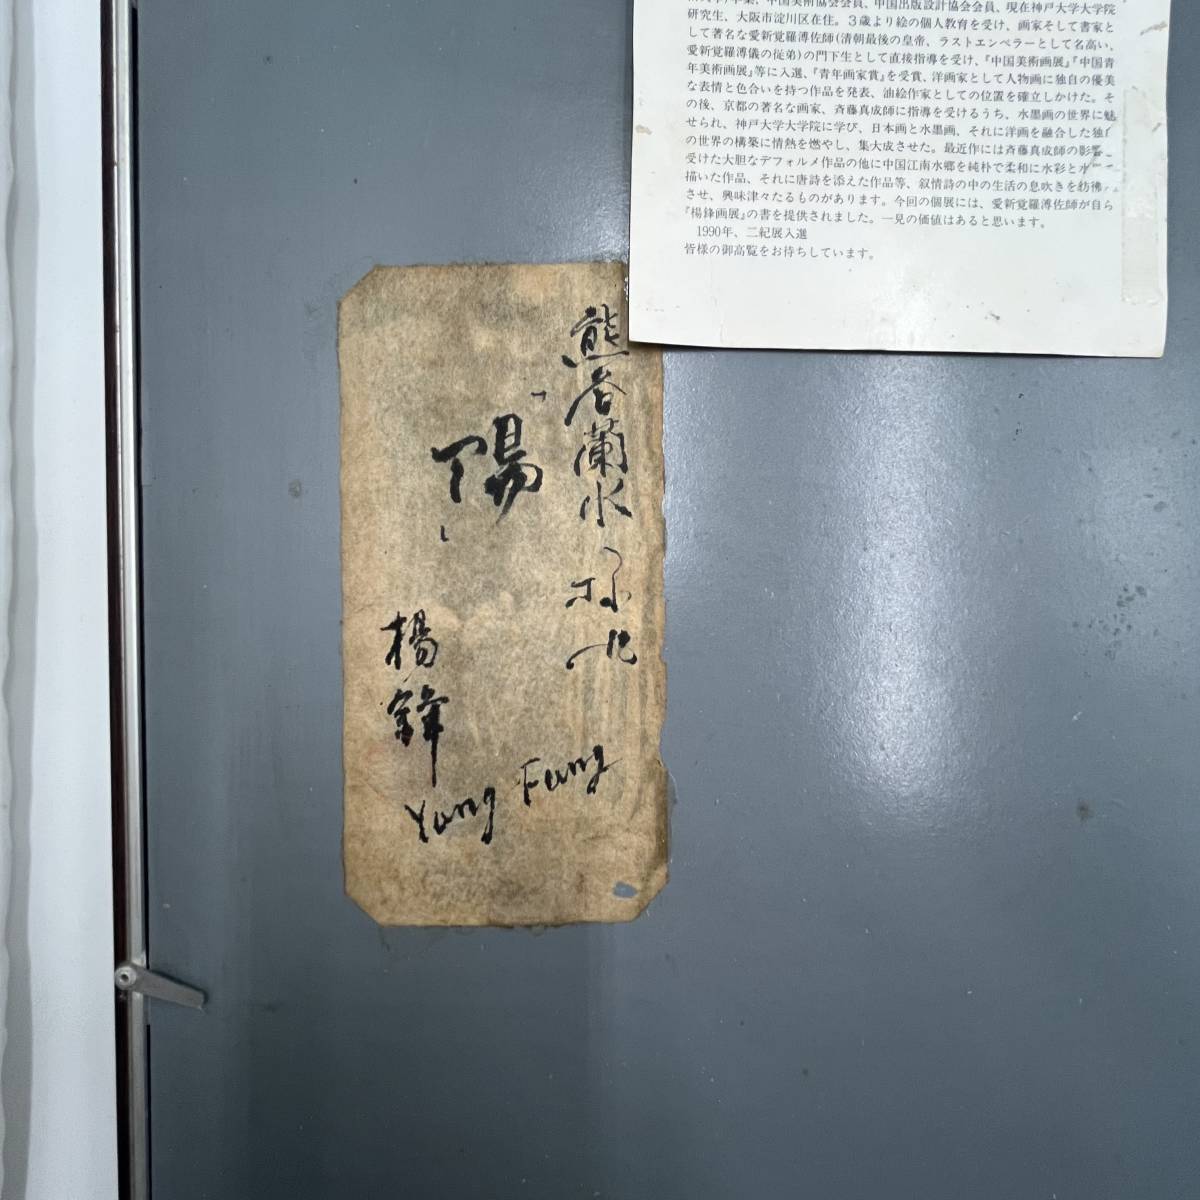 卒業、中国美術協会会員、中国出版設計協会会員、現在神戸大学大学院
研究生、大阪市淀川区在住。３歳より絵の個人教育を受け、画家そして書家と
して著名な愛新覚羅溥佐師(清朝最後の皇帝、ラストエンペラーとして名高い、
愛新覚羅溥儀の従弟)の門下生として直接指導を受け、『中国美術画展』『中国青
年美術画展』等に入選、『青年画家賞』を受賞、洋画家として人物画に独自の優美
な表情と色合いを持つ作品を発表、油絵作家としての位置を確立しかけた。そ
の後、京都の著名な画家、斉藤真成師に指導を受けるうち、水墨画の世界に魅
せられ、神戸大学大学院に学び、日本画と水墨画、それに洋画を融合した独
の世界の構築に情熱を燃やし、集大成させた。最近作には斉藤真成師の影響
受けた大胆なデフォルメ作品の他に中国江南水郷を純朴で柔和に水彩と水
描いた作品、それに唐詩を添えた作品等、叙情詩の中の生活の息吹きを彷彿
させ、興味津々たるものがあります。今回の個展には、愛新覚羅溥佐師が自ら
『楊鋒画展』の書を提供されました。一見の価値はあると思います。
1990年、二紀展入選
皆様の御高覧をお待ちしています。
熊谷蘭水
「陽」
楊鋒
Yang Fung